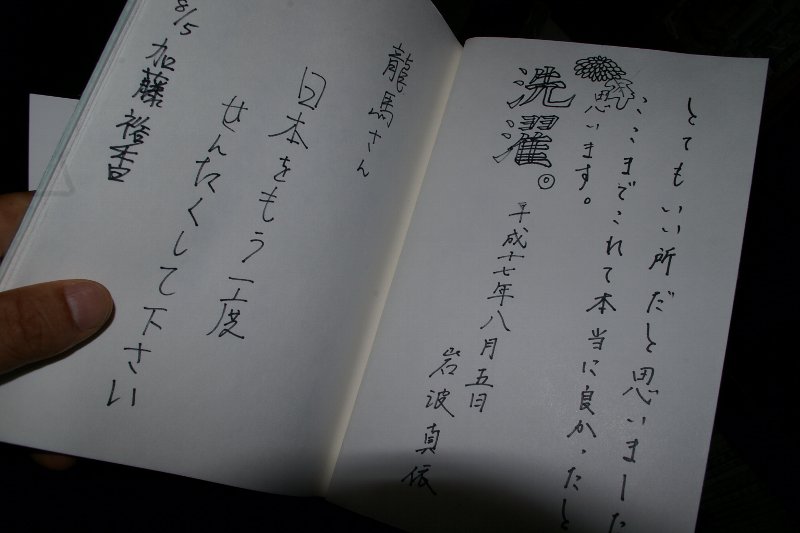 とてもいい所だと思いました
ここまでこれて本当に良かったと
思います。
洗濯。
平成十七年八月五日
岩波真依
龍馬さん
日本をもう一度
せんたくして下さい
8/5
加藤裕香